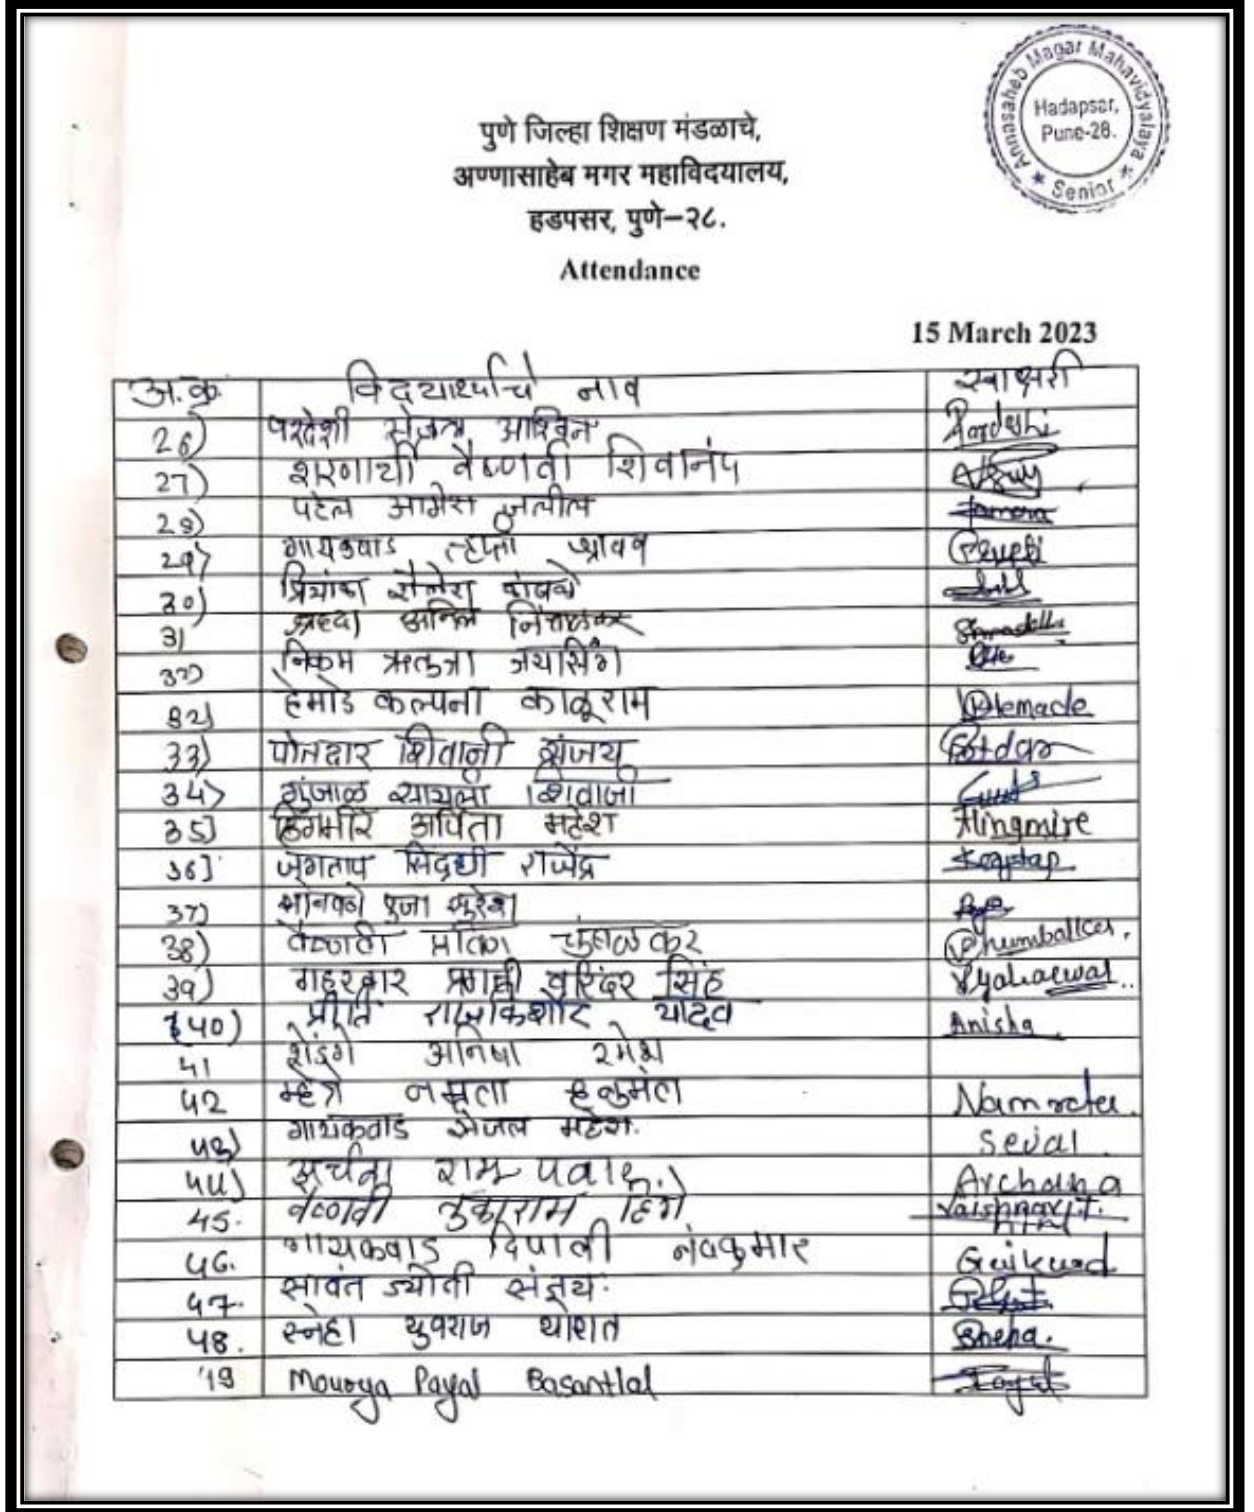 Annasaheb Magar Mahavidyalaya
Hadapsar,
Pune-28.
★ Senior ★
पुणे जिल्हा शिक्षण मंडळाचे,
अण्णासाहेब मगर महाविदयालय,
हडपसर, पुणे–२८.
Attendance
15 March 2023
अ.क्र. विद्यार्थ्याचे नाव स्वाक्षरी
26) परदेशी सेजल आश्विन Pardeshi
27) शरणार्थी वैष्णवी शिवानंद
28) पटेल आमेरा जलील
29) गायकवाड श्रावण
30) प्रियांका शैलेश कांबळे
31 श्रध्दा अनिल निंबाळकर Shraddha
32) निकम ऋतुजा जयसिंग
32) हेमाडे कल्पना काळूराम Hemade
33) पोतदार शिवानी संजय Potdar
34) गुंजाळ सायली शिवाजी
35] हिंगमीरे अर्पिता महेश Hingmire
36] जगताप सिद्धी राजेंद्र Jagtap
37) सोनवणे पुजा सुरेश
38) वैष्णवी चुंबळकर Chumbalkar.
39) गहरवार वरिंदर सिंह Gaharwar..
40) प्रीति राजकिशोर यादव Anisha
41 शेंडगे अनिषा रमेश
42 म्हेत्रे नम्रता हनुमंत Namrata.
43) गायकवाड सेजल महेश. Sejal
44) अर्चना राम पवार. Archana
45. वैष्णवी तुकाराम हिंगे Vaishnavi.T.
46. गायकवाड दिपाली नंदकुमार Gaikwad
47. सावंत ज्योती संजय.
48. स्नेहा युवराज थोरात Sneha.
49 Mourya Payal Basantlal Payal